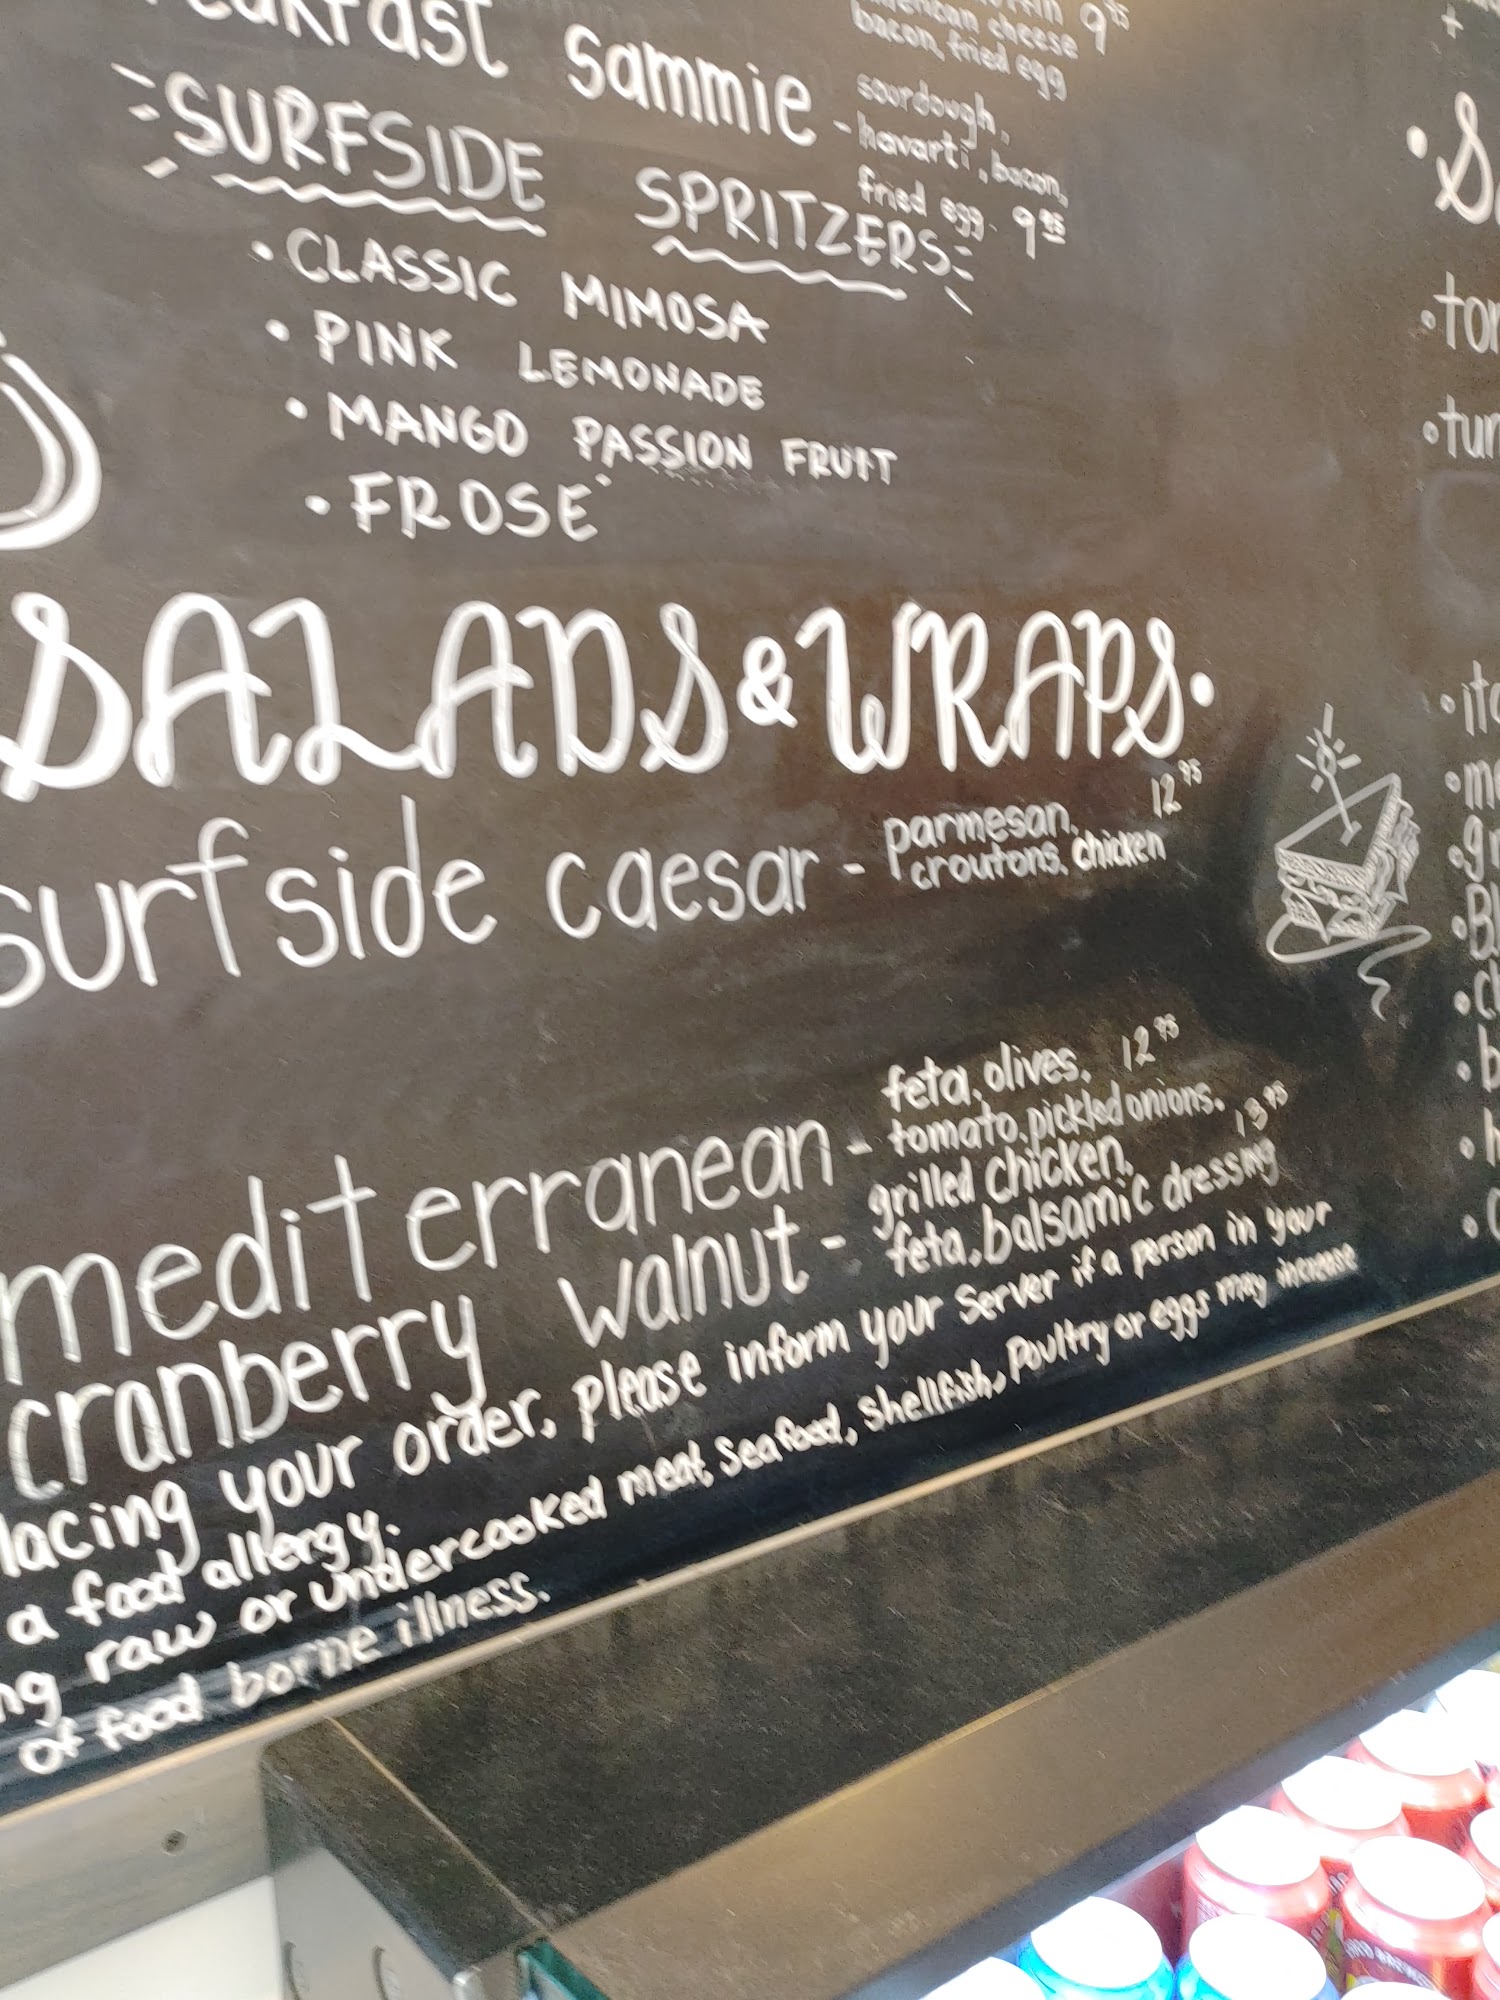 Sammie -
american cheese 9 95
bacon, fried egg
sourdough,
havarti, bacon,
fried egg. 9 95
SURFSIDE SPRITZERS
• CLASSIC MIMOSA
• PINK LEMONADE
• MANGO PASSION FRUIT
• FROSE'
SALADS & WRAPS •
surfside caesar - parmesan, 12 95
croutons, chicken
mediterranean - feta, olives, 12 95
tomato, pickled onions.
cranberry walnut - grilled chicken, 13 95
feta, balsamic dressing
your order, please inform your server if a person in your
a food allergy.
raw or undercooked meat, seafood, shellfish, poultry or eggs may increase
of food borne illness.